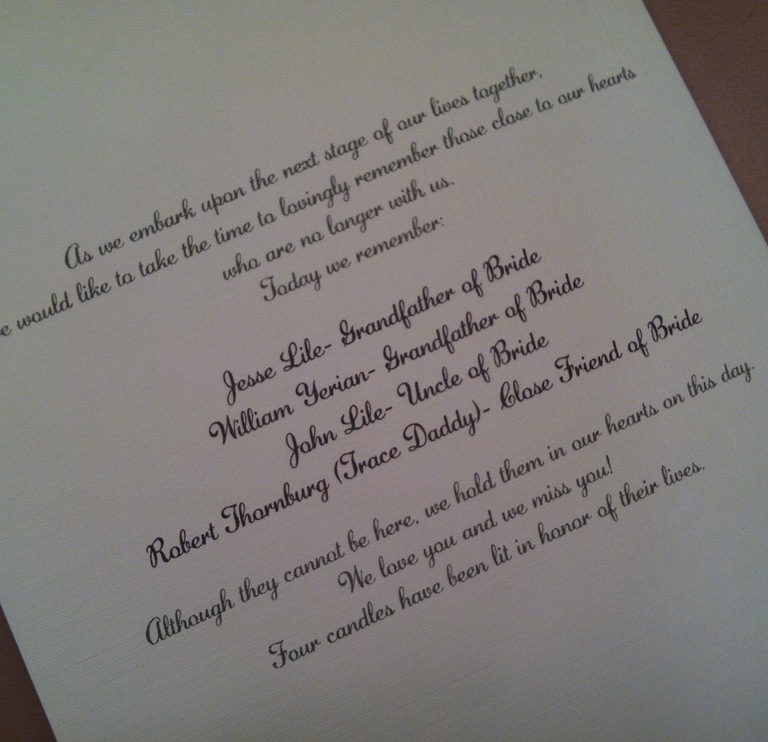 As we embark upon the next stage of our lives together,
e would like to take the time to lovingly remember those close to our hearts
who are no longer with us.
Today we remember:
Jesse Lile- Grandfather of Bride
William Yerian- Grandfather of Bride
John Lile- Uncle of Bride
Robert Thornburg (Trace Daddy)- Close Friend of Bride
Although they cannot be here, we hold them in our hearts on this day.
We love you and we miss you!
Four candles have been lit in honor of their lives.